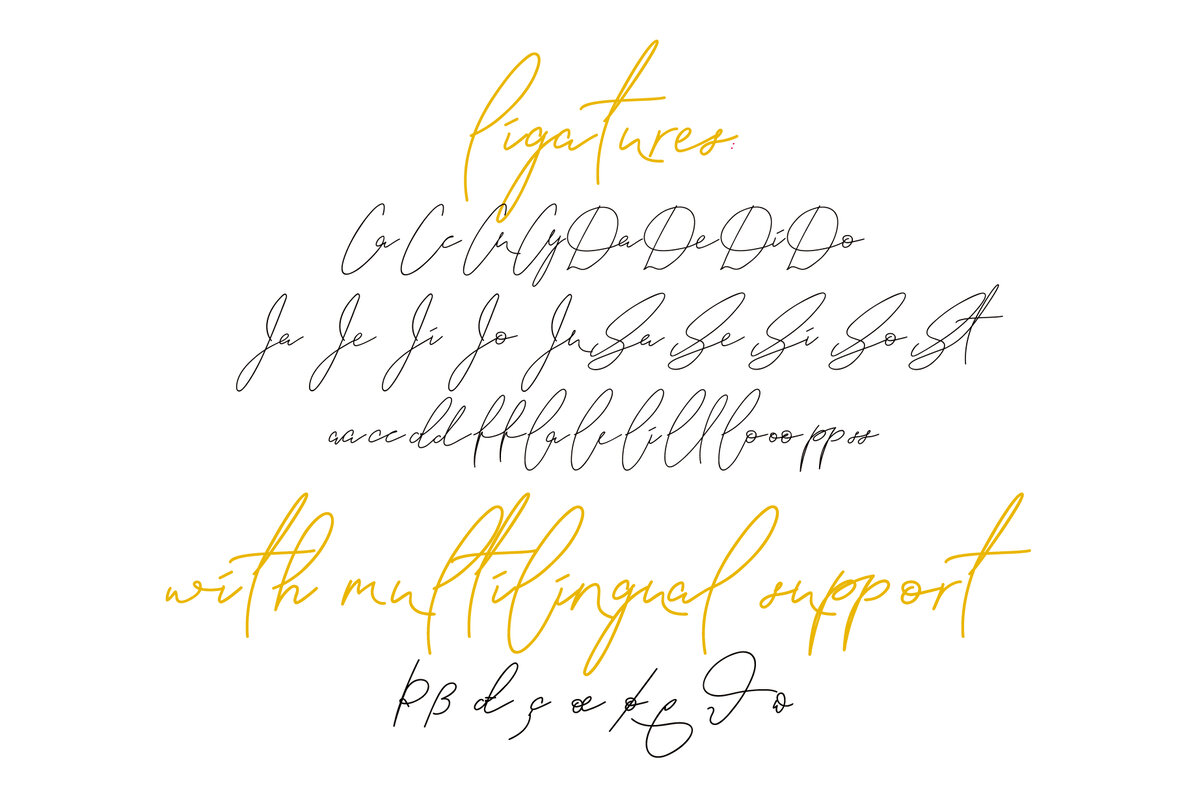 ligatures:
Ca Cc Cu Cy Da De Di Do
Ja Je Ji Jo Ju Sa Se Si So St
aa cc dd ff la le li ll lo oo pp ss
with multilingual support
þ ß đ ç œ ø